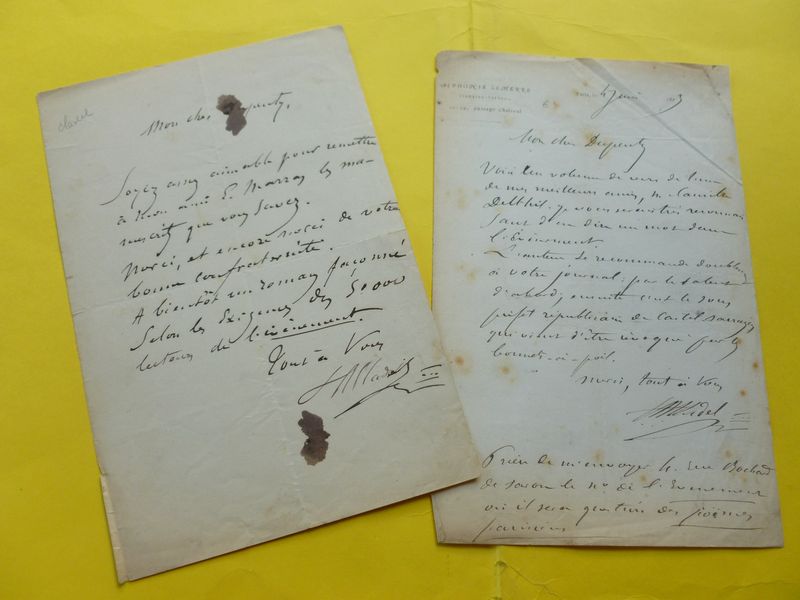 cladel
Mon cher Depently,
Soyez assez aimable pour remettre
à mon ami E. Marras les ma-
nuscrit que vous savez.
Merci, et encore merci de votre
bonne confraternité.
A bientôt un roman façonné
Selon les exigences des 50000
lecteurs de l'événement.
Tout à Vous
ALPHONSE LEMERRE
Passage Choiseul
Paris, le 4 juin 1873
Mon cher Depently
Voici un volume de vers de l'un
de mes meilleurs amis, M. Camille
Delthil. je vous serai très reconnais
sant d'en dire un mot dans
l'événement.
L'auteur se recommande doublement
à votre journal: par le talent
d'abord; ensuite c'est le sous
préfet républicain de Castel Sarrazin
qui vient d'être révoqué par les
bonnets-à-poil.
merci, tout à Vous
Prière de m'envoyer 16 rue Bochard
de Saron le n° de l'Evenement
où il sera question des poëmes
parisiens